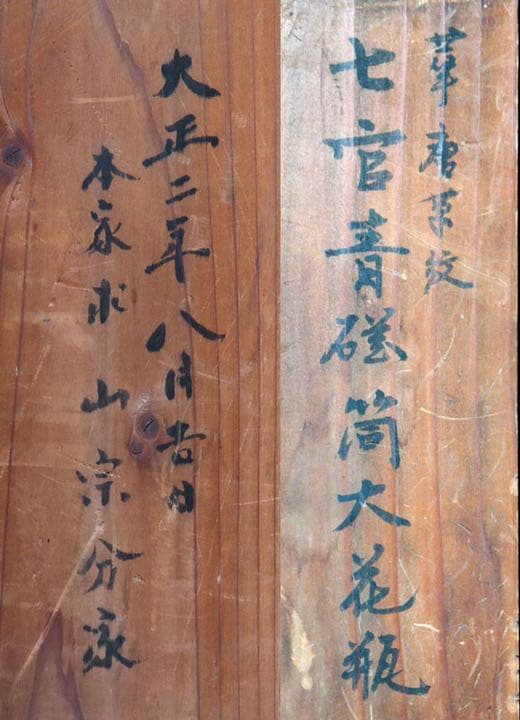 華唐草紋
七官青磁筒大花瓶
大正二年八月吉日
本家求 山宗分家